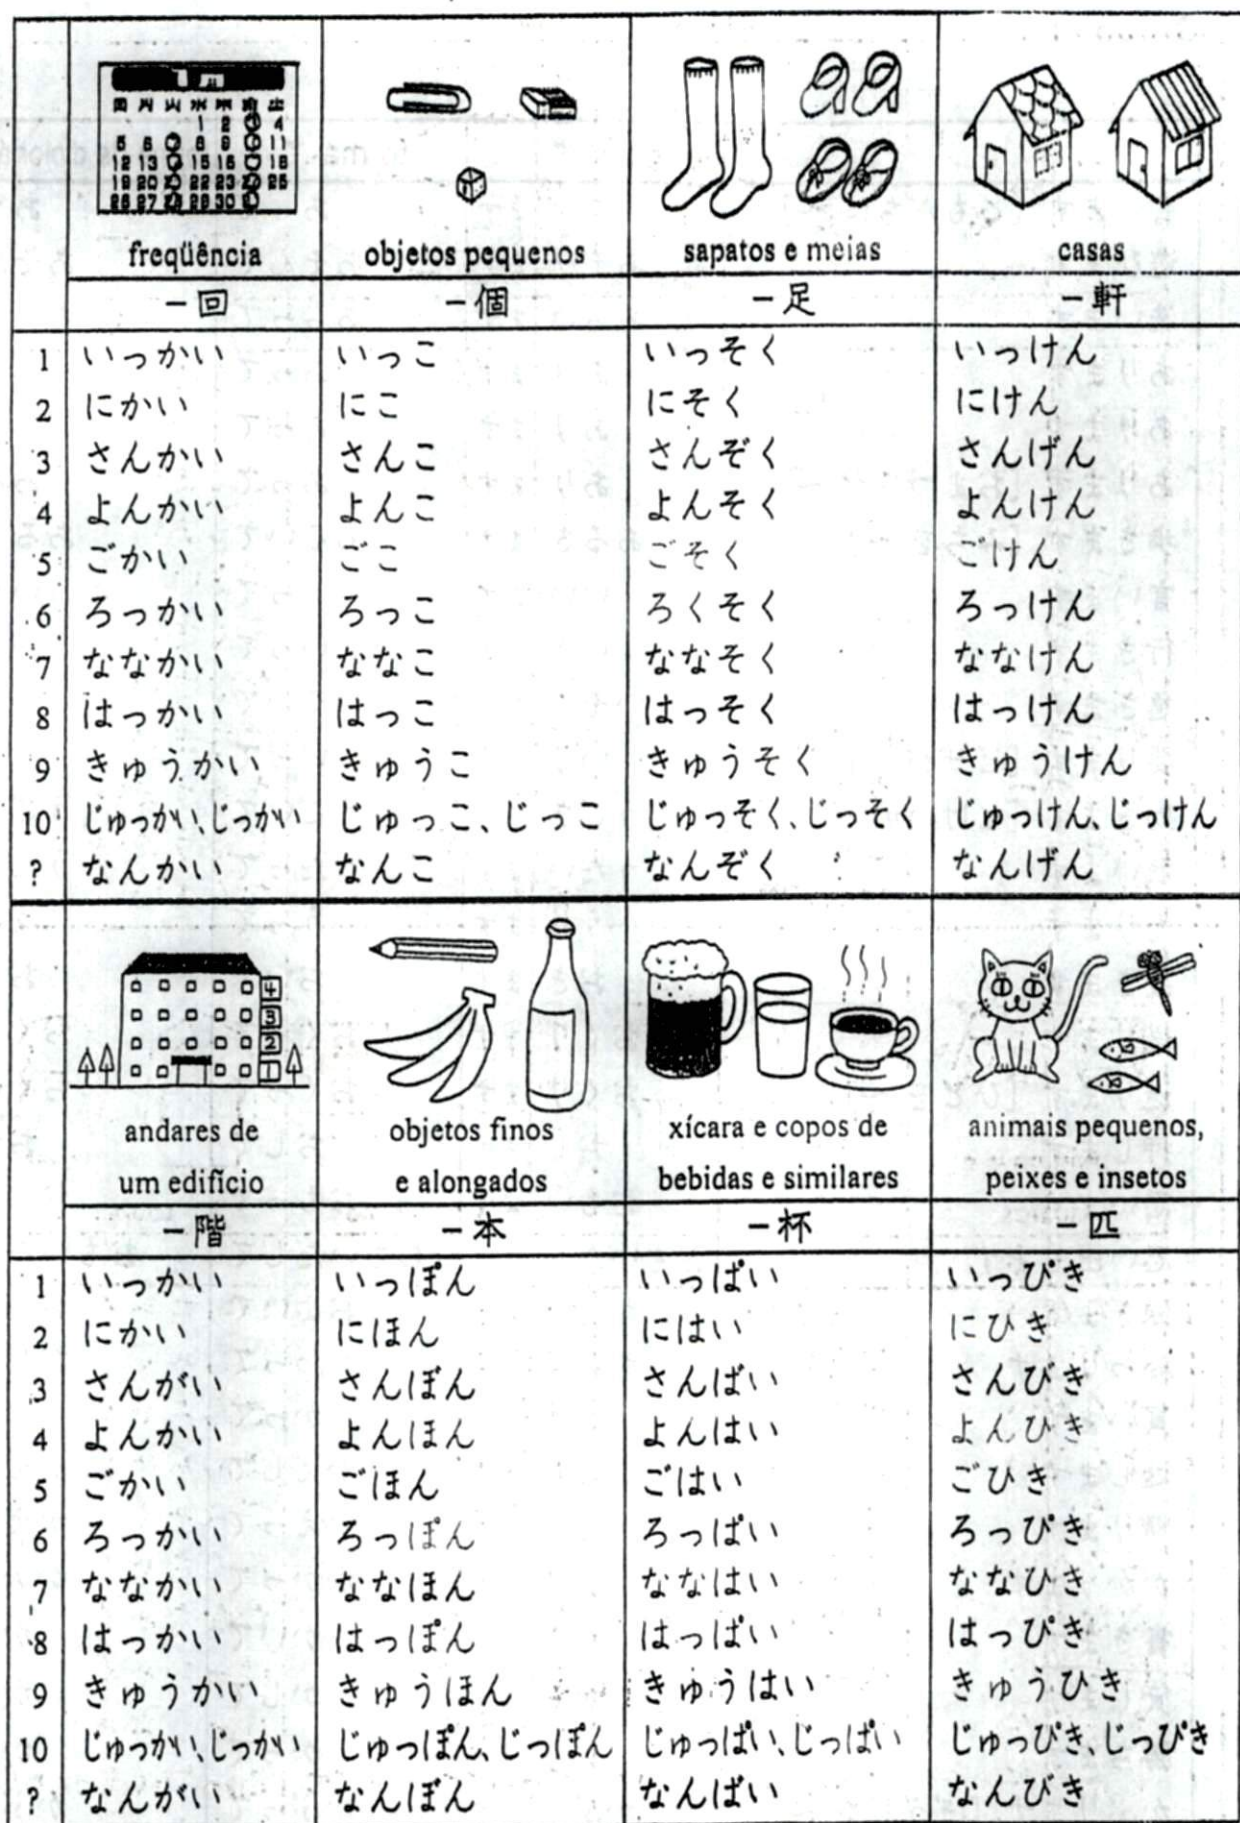 freqüência objetos pequenos sapatos e meias casas
－回 －個 －足 －軒
1 いっかい いっこ いっそく いっけん
2 にかい にこ にそく にけん
3 さんかい さんこ さんぞく さんげん
4 よんかい よんこ よんそく よんけん
5 ごかい ごこ ごそく ごけん
6 ろっかい ろっこ ろくそく ろっけん
7 ななかい ななこ ななそく ななけん
8 はっかい はっこ はっそく はっけん
9 きゅうかい きゅうこ きゅうそく きゅうけん
10 じゅっかい、じっかい じゅっこ、じっこ じゅっそく、じっそく じゅっけん、じっけん
? なんかい なんこ なんぞく なんげん
4
3
2
1
andares de objetos finos xícara e copos de animais pequenos,
um edifício e alongados bebidas e similares peixes e insetos
－階 －本 －杯 －匹
1 いっかい いっぽん いっぱい いっぴき
2 にかい にほん にはい にひき
3 さんがい さんぼん さんばい さんびき
4 よんかい よんほん よんはい よんひき
5 ごかい ごほん ごはい ごひき
6 ろっかい ろっぽん ろっぱい ろっぴき
7 ななかい ななほん ななはい ななひき
8 はっかい はっぽん はっぱい はっぴき
9 きゅうかい きゅうほん きゅうはい きゅうひき
10 じゅっかい、じっかい じゅっぽん、じっぽん じゅっぱい、じっぱい じゅっぴき、じっぴき
? なんがい なんぼん なんばい なんびき